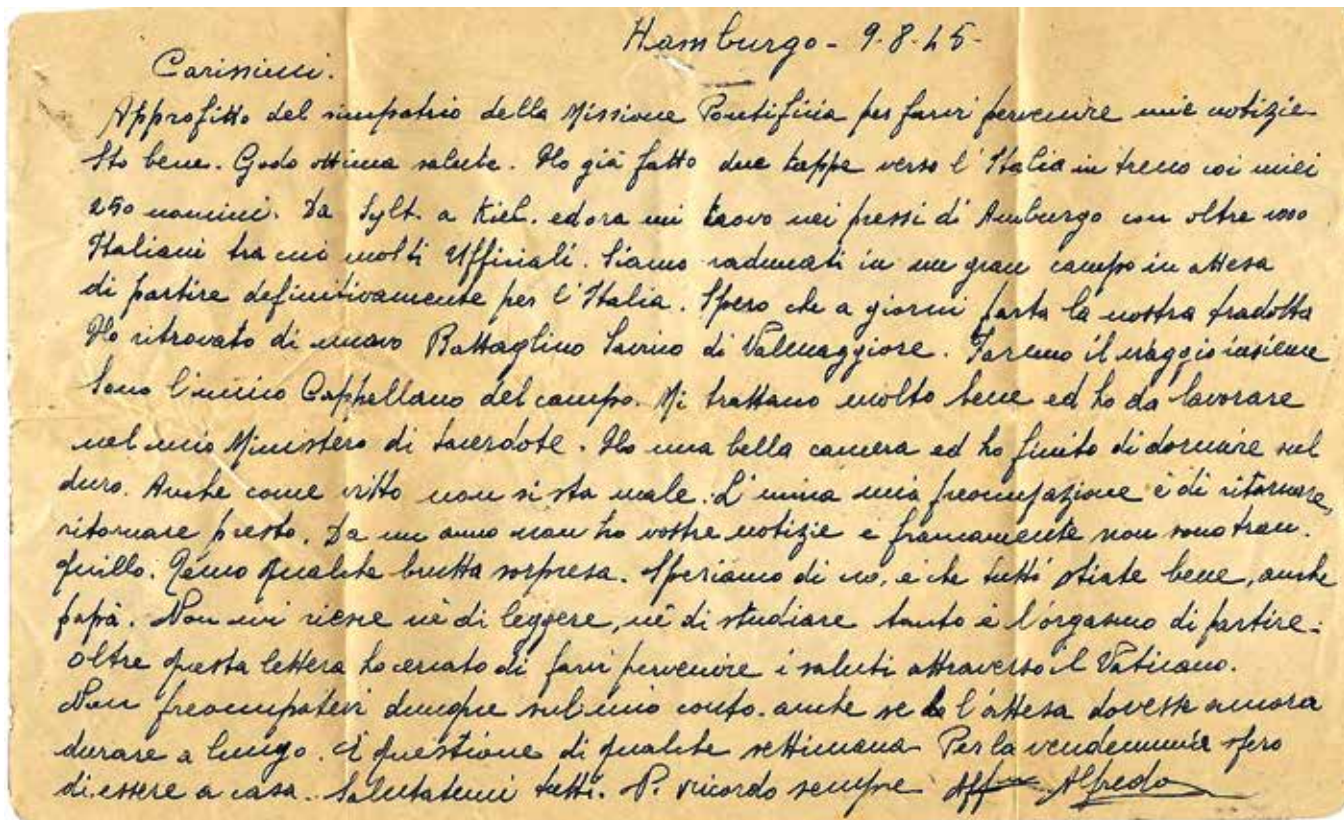 Hamburgo - 9.8.45-
Carissimi.
Approfitto del rimpatrio della Missione Pontificia per farvi pervenire mie notizie
Sto bene. Godo ottima salute. Ho già fatto due tappe verso l'Italia in treno coi miei
250 uomini. Da Sylt. a Kiel. ed ora mi trovo nei pressi di Amburgo con oltre 1000
Italiani tra cui molti Ufficiali. Siamo radunati in un gran campo in attesa
di partire definitivamente per l'Italia. Spero che a giorni parta la nostra tradotta
Ho ritrovato di nuovo Battaglino di Valmaggiore. Faremo il viaggio insieme
Sono l'unico Cappellano del campo. Mi trattano molto bene ed ho da lavorare
nel mio Ministero di Sacerdote. Ho una bella camera ed ho finito di dormire sul
duro. Anche come vitto non si sta male. L'unica mia preoccupazione è di ritornare,
ritornare presto. Da un anno non ho vostre notizie e francamente non sono tran.
quillo. Temo qualche brutta sorpresa. Speriamo di no, e che tutti stiate bene, anche
papà. Non mi riesce nè di leggere, nè di studiare tanto è l'orgasmo di partire.
Oltre questa lettera ho cercato di farvi pervenire i saluti attraverso il Vaticano.
Non preoccupatevi dunque sul mio conto. anche se l'attesa dovesse ancora
durare a lungo. È questione di qualche settimana Per la vendemmia spero
di essere a casa. Salutatemi tutti. Vi ricordo sempre Aff Alfredo